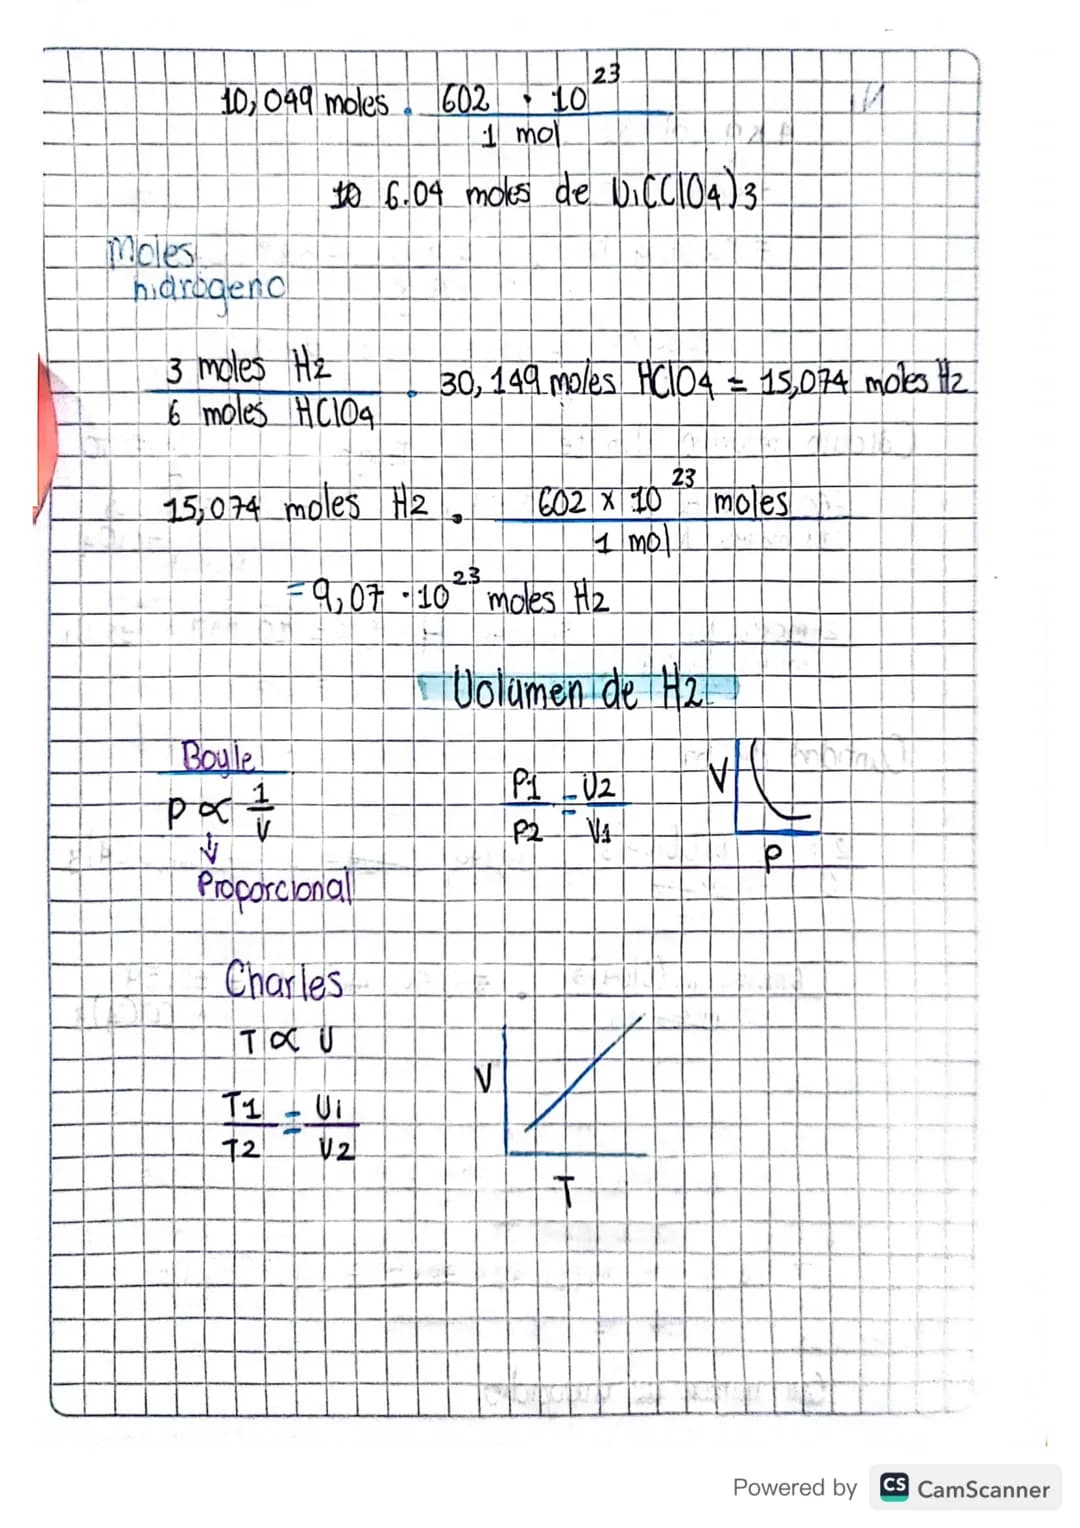 10,049 moles . 602 · 10^23
1 mol
6.04 moles de Ni(ClO4)3
Moles
hidrógeno
3 moles H2
6 moles HClO4
. 30,149 moles HClO4 = 15,074 moles H2
15,074 moles H2 . 602 x 10^23 moles
1 mol
= 9,07 · 10^23 moles H2
Volumen de H2
Boyle
P ∝ 1/V
↓
Proporcional
P1/P2 = V2/V1
V
P
Charles
T ∝ V
T1/T2 = Vi/V2
V
T
Powered by CS CamScanner